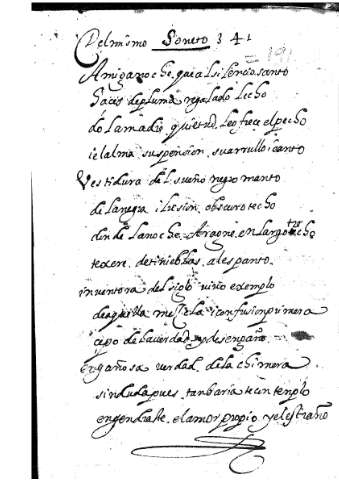 Del mismo Soneto 341
191
Amiga noche, que al silencio santo
haces de pluma regalado lecho
do la madre quietud, le ofrece el pecho
i el alma suspension, su arrullo i canto
Vestidura del sueño negro manto
de la negra ilusion, obscuro techo
den de la noche Aragne, en largo trecho
texen, de tinieblas, al espanto.
inventora del siglo vivo exemplo
de aquella mezcla i confusion primera
cepo de la verdad, y desengaño.
engañosa verdad, de la chimera
sin duda pues, tan baria te contemplo
engendraste, el amor propio, y el estraño